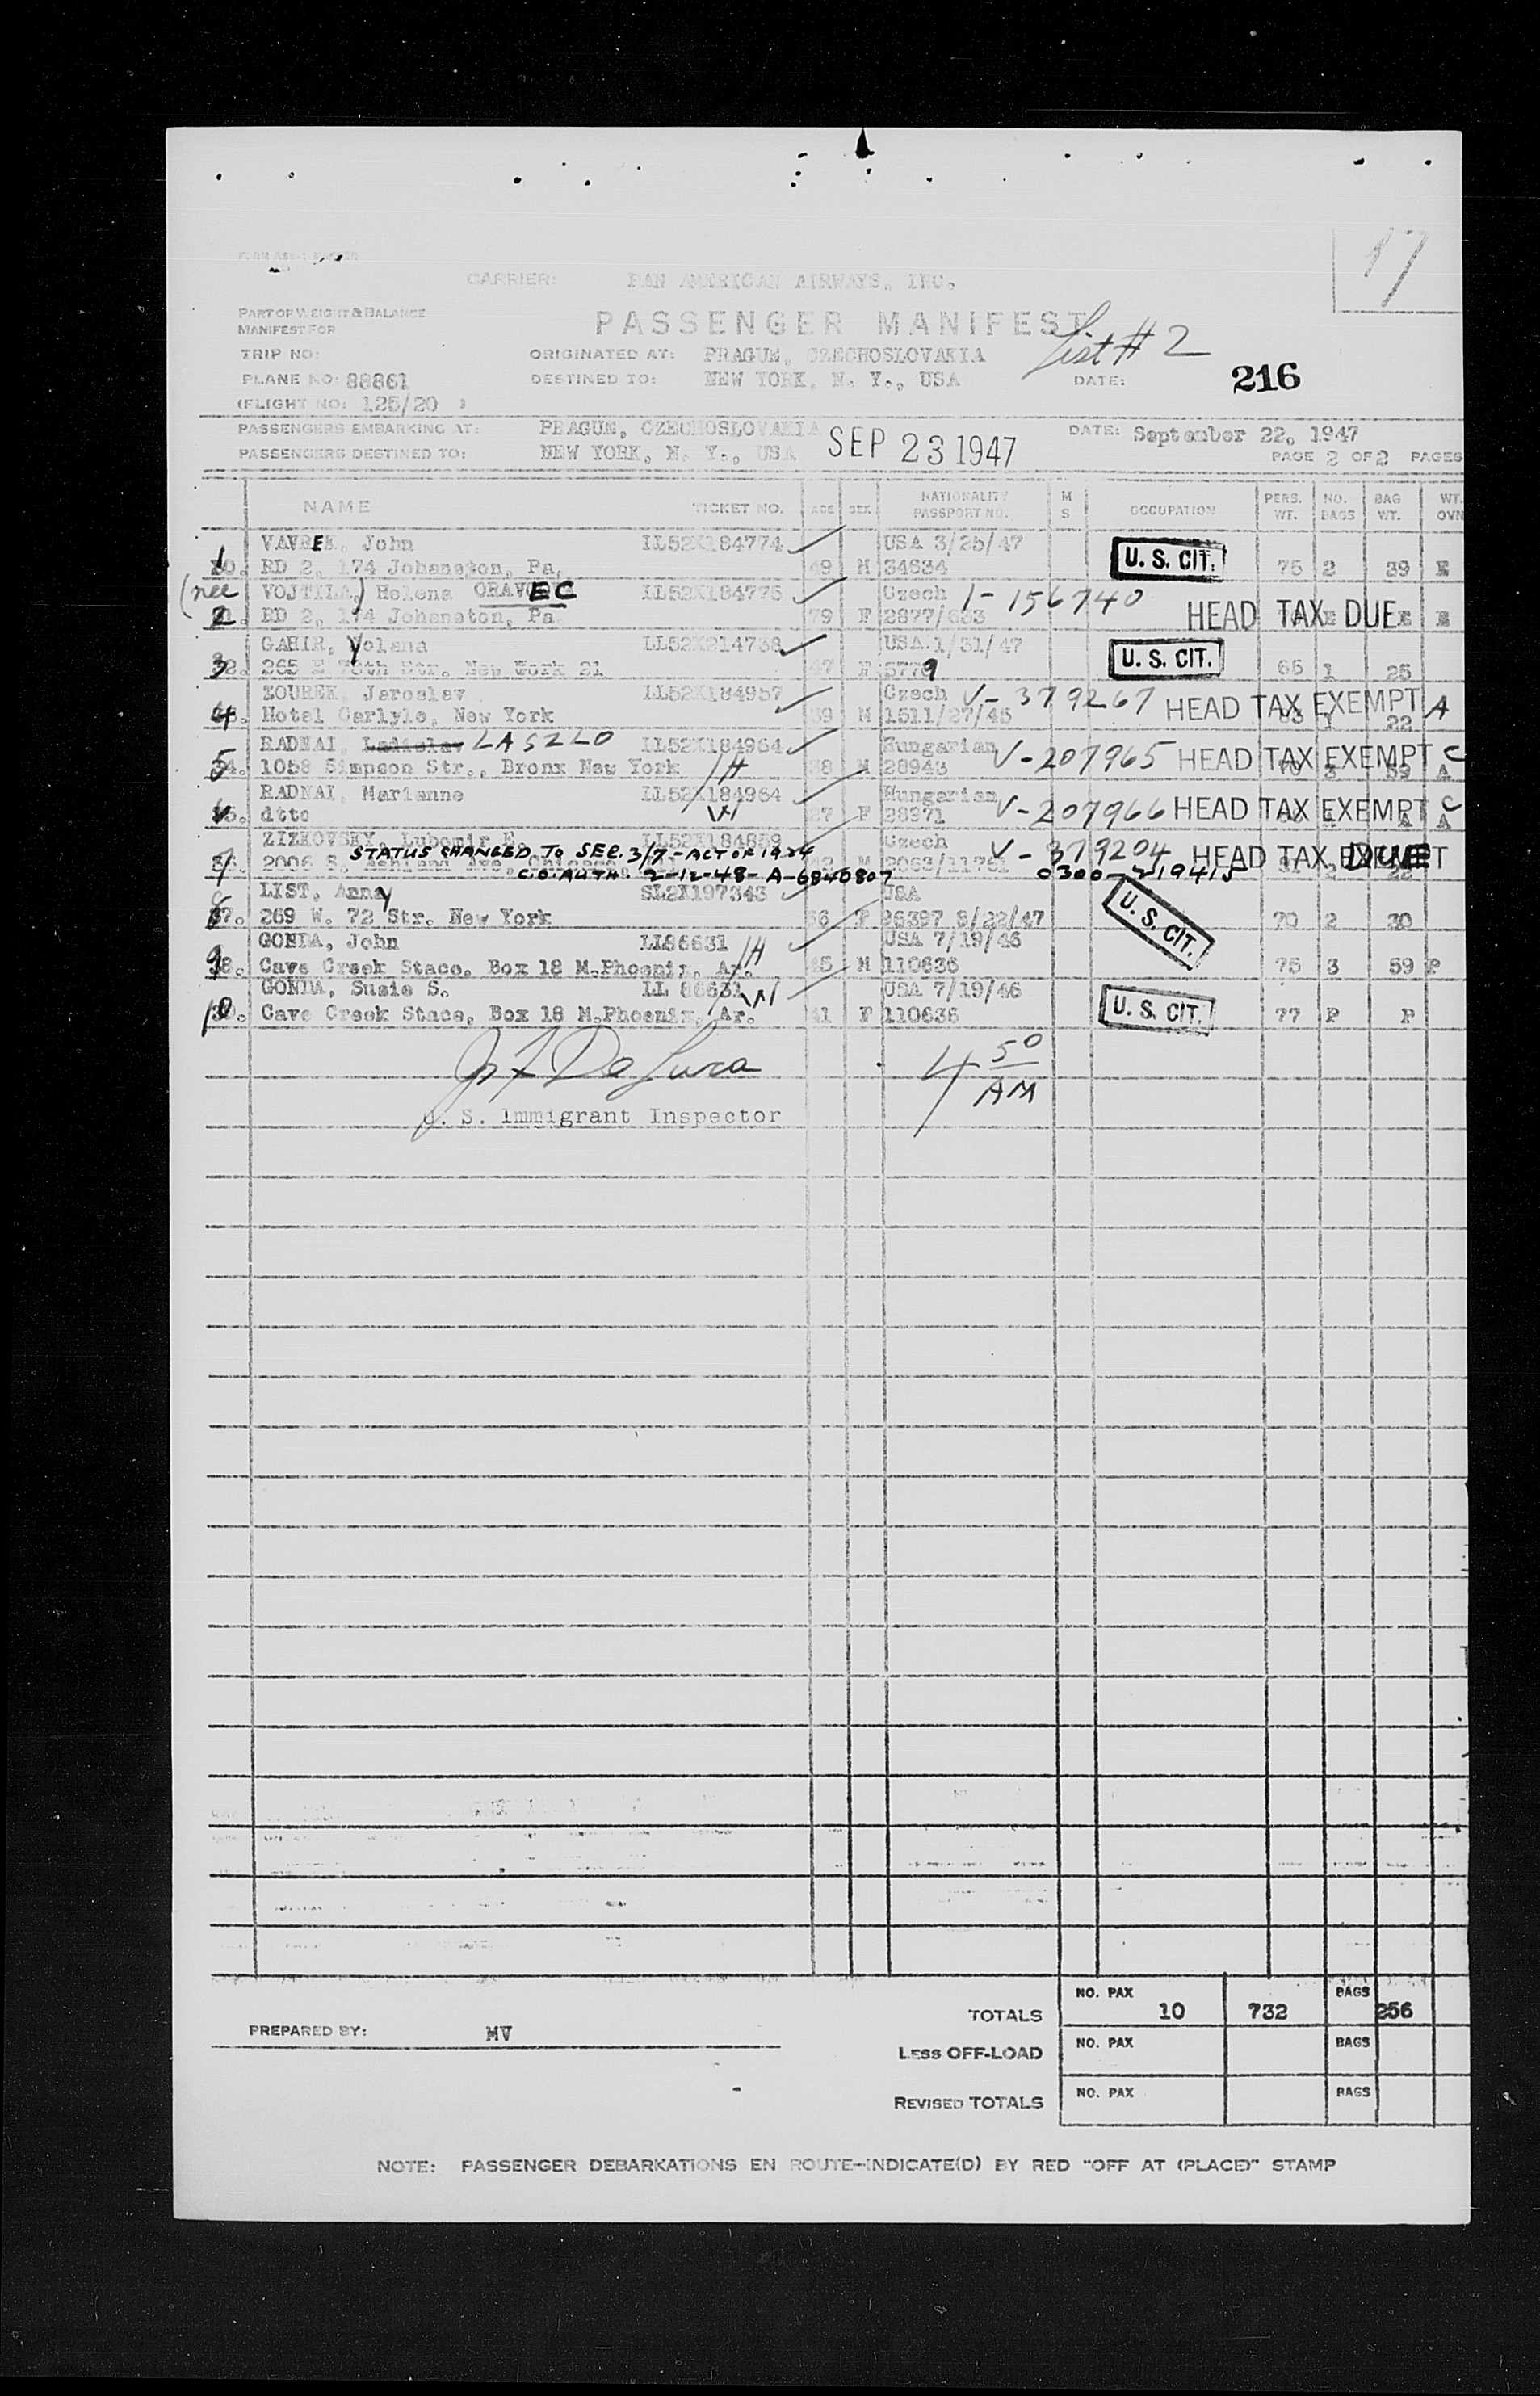 17
CARRIER: PAN AMERICAN AIRWAYS, INC.
PART OF WEIGHT & BALANCE
MANIFEST FOR
PASSENGER MANIFEST
List # 2
TRIP NO:
ORIGINATED AT: PRAGUE, CZECHOSLOVAKIA
PLANE NO: 88861
DESTINED TO: NEW YORK, N. Y., USA
DATE:
216
(FLIGHT NO: 125/20 )
PASSENGERS EMBARKING AT: PRAGUE, CZECHOSLOVAKIA
DATE: September 22, 1947
PASSENGERS DESTINED TO: NEW YORK, N. Y., USA
SEP 23 1947
PAGE 2 OF 2 PAGES
NAME TICKET NO. AGE SEX NATIONALITY PASSPORT NO. M S OCCUPATION PERS. WT. NO. BAGS BAG WT. WT. OVN
VAVREK, John LL52X184774 USA 3/25/47
1 RD 2, 174 Johnston, Pa. 49 M 34634 U. S. CIT. 75 2 39
(nee VOJTILA) Helena ORAVEC LL52X184775 Czech I-156740
2 RD 2, 174 Johnston, Pa 79 F 2877/633 HEAD TAX DUE
GAHIR, Yolana LL52X214738 USA 1/31/47
3 265 E 78th Str. New York 21 47 F 5779 U. S. CIT. 65 1 25
ZOUREK, Jaroslav LL52X184957 Czech V-379267
4 Hotel Carlyle, New York 39 M 1511/27/45 HEAD TAX EXEMPT 22 A
RADNAI, Ladislav LASZLO LL52X184964 Hungarian V-207965
5 1058 Simpson Str., Bronx New York H 38 M 28943 HEAD TAX EXEMPT C
RADNAI, Marianne LL52X184964 Hungarian V-207966
ditto W 27 F 28971 HEAD TAX EXEMPT C
ZIZKOVSKY, Lubomir E. LL52X184859 Czech V-379204
STATUS CHANGED TO SEC. 3/7-ACT OF 1924
7 HEAD TAX DUE
C.O. AUTH. 2-12-48- A-6840807 0300-219415
LIST, Anny SL2X197343 USA
8 269 W. 72 Str. New York 56 F 26397 8/22/47 U. S. CIT. 70 2 30
GONDA, John LL86631 H USA 7/19/46
9 Cave Creek Stace. Box 18 M.Phoenix, Ar. 45 M 110636 75 3 59 P
GONDA, Susie S. LL 86631 W USA 7/19/46
10 Cave Creek Stace, Box 18 M.Phoenix, Ar. 41 F 110636 U. S. CIT. 77 P P
4 50 AM
U. S. Immigrant Inspector
TOTALS NO. PAX 10 732 BAGS 256
PREPARED BY: MV
LESS OFF-LOAD NO. PAX BAGS
REVISED TOTALS NO. PAX BAGS
NOTE: PASSENGER DEBARKATIONS EN ROUTE-INDICATE(D) BY RED "OFF AT (PLACE)" STAMP